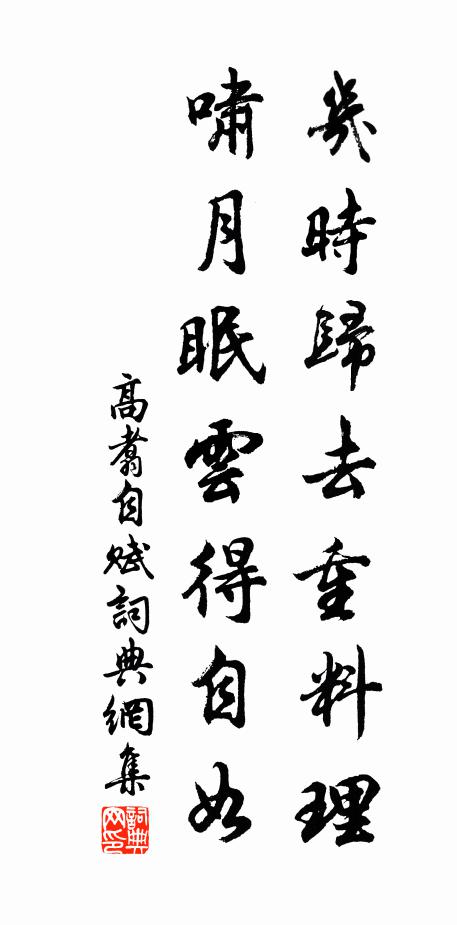 幾時歸去重料理
嘯月眠雲得自如
高翥自賦詞典網集
詞典网印